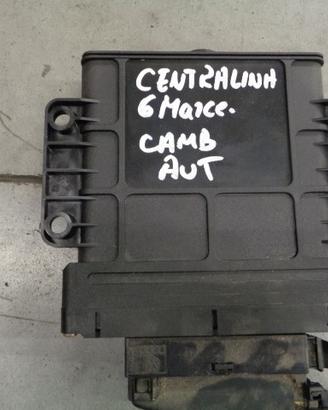 CENTRALINA
6 Marce.
CAMB
AUT